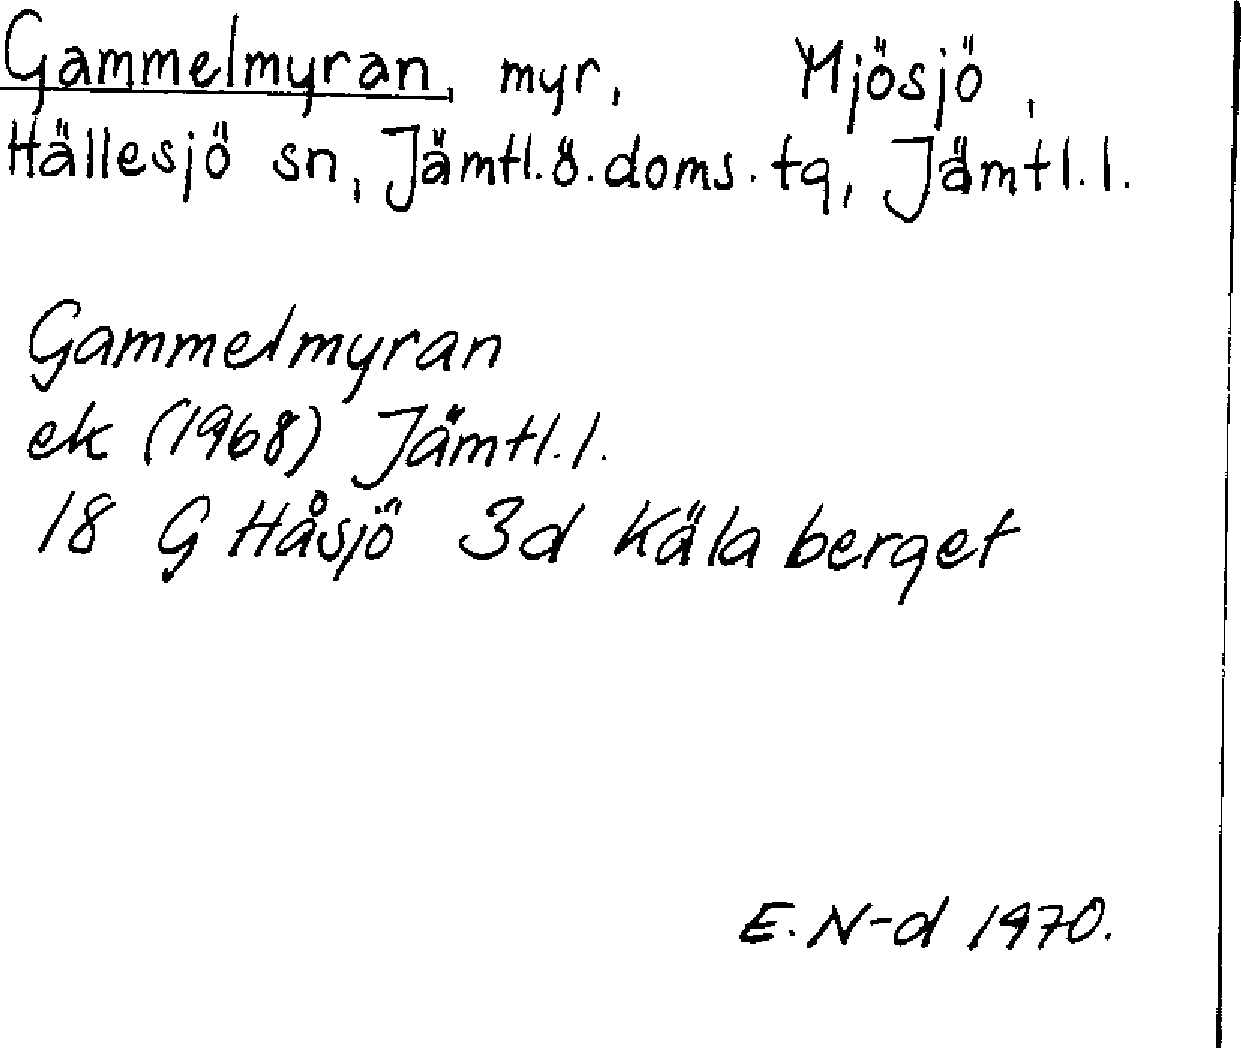 Gammelmyran, myr, Mjösjö,
Hällesjö sn, Jämtl.ö.doms.tg, Jämtl.l.
Gammelmyran
ek (1968) Jämtl.l.
18 G Håsjö 3d Kälaberget
E. N-d 1970.